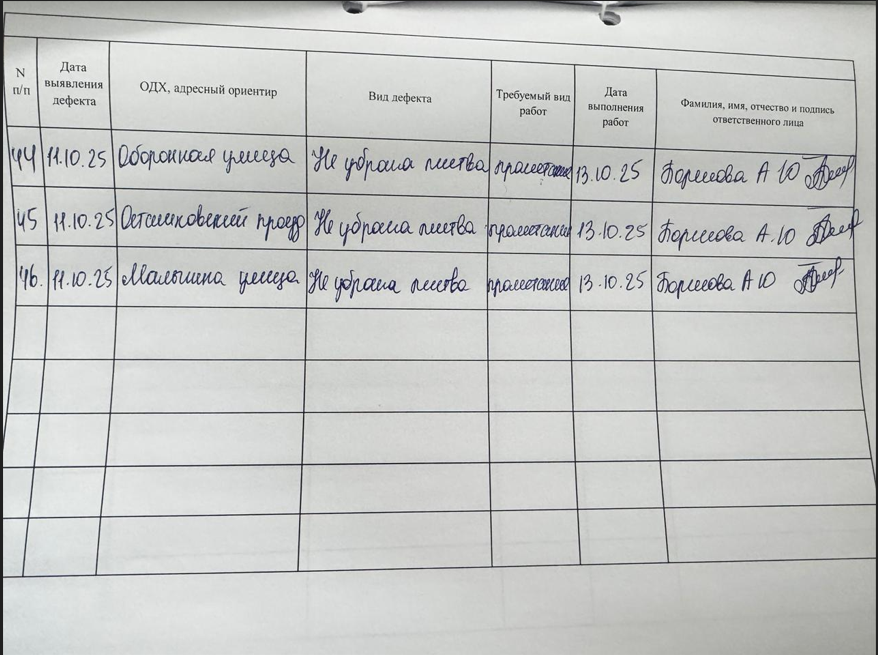 N п/п
Дата выявления дефекта
ОДХ, адресный ориентир
Вид дефекта
Требуемый вид работ
Дата выполнения работ
Фамилия, имя, отчество и подпись ответственного лица
44 11.10.25 Оборонная улица Не убрана листва прометание 13.10.25 А Ю
45 11.10.25 Осташковский проезд Не убрана листва прометание 13.10.25 А.Ю
46. 11.10.25 Малыгина улица Не убрана листва прометание 13.10.25 А Ю